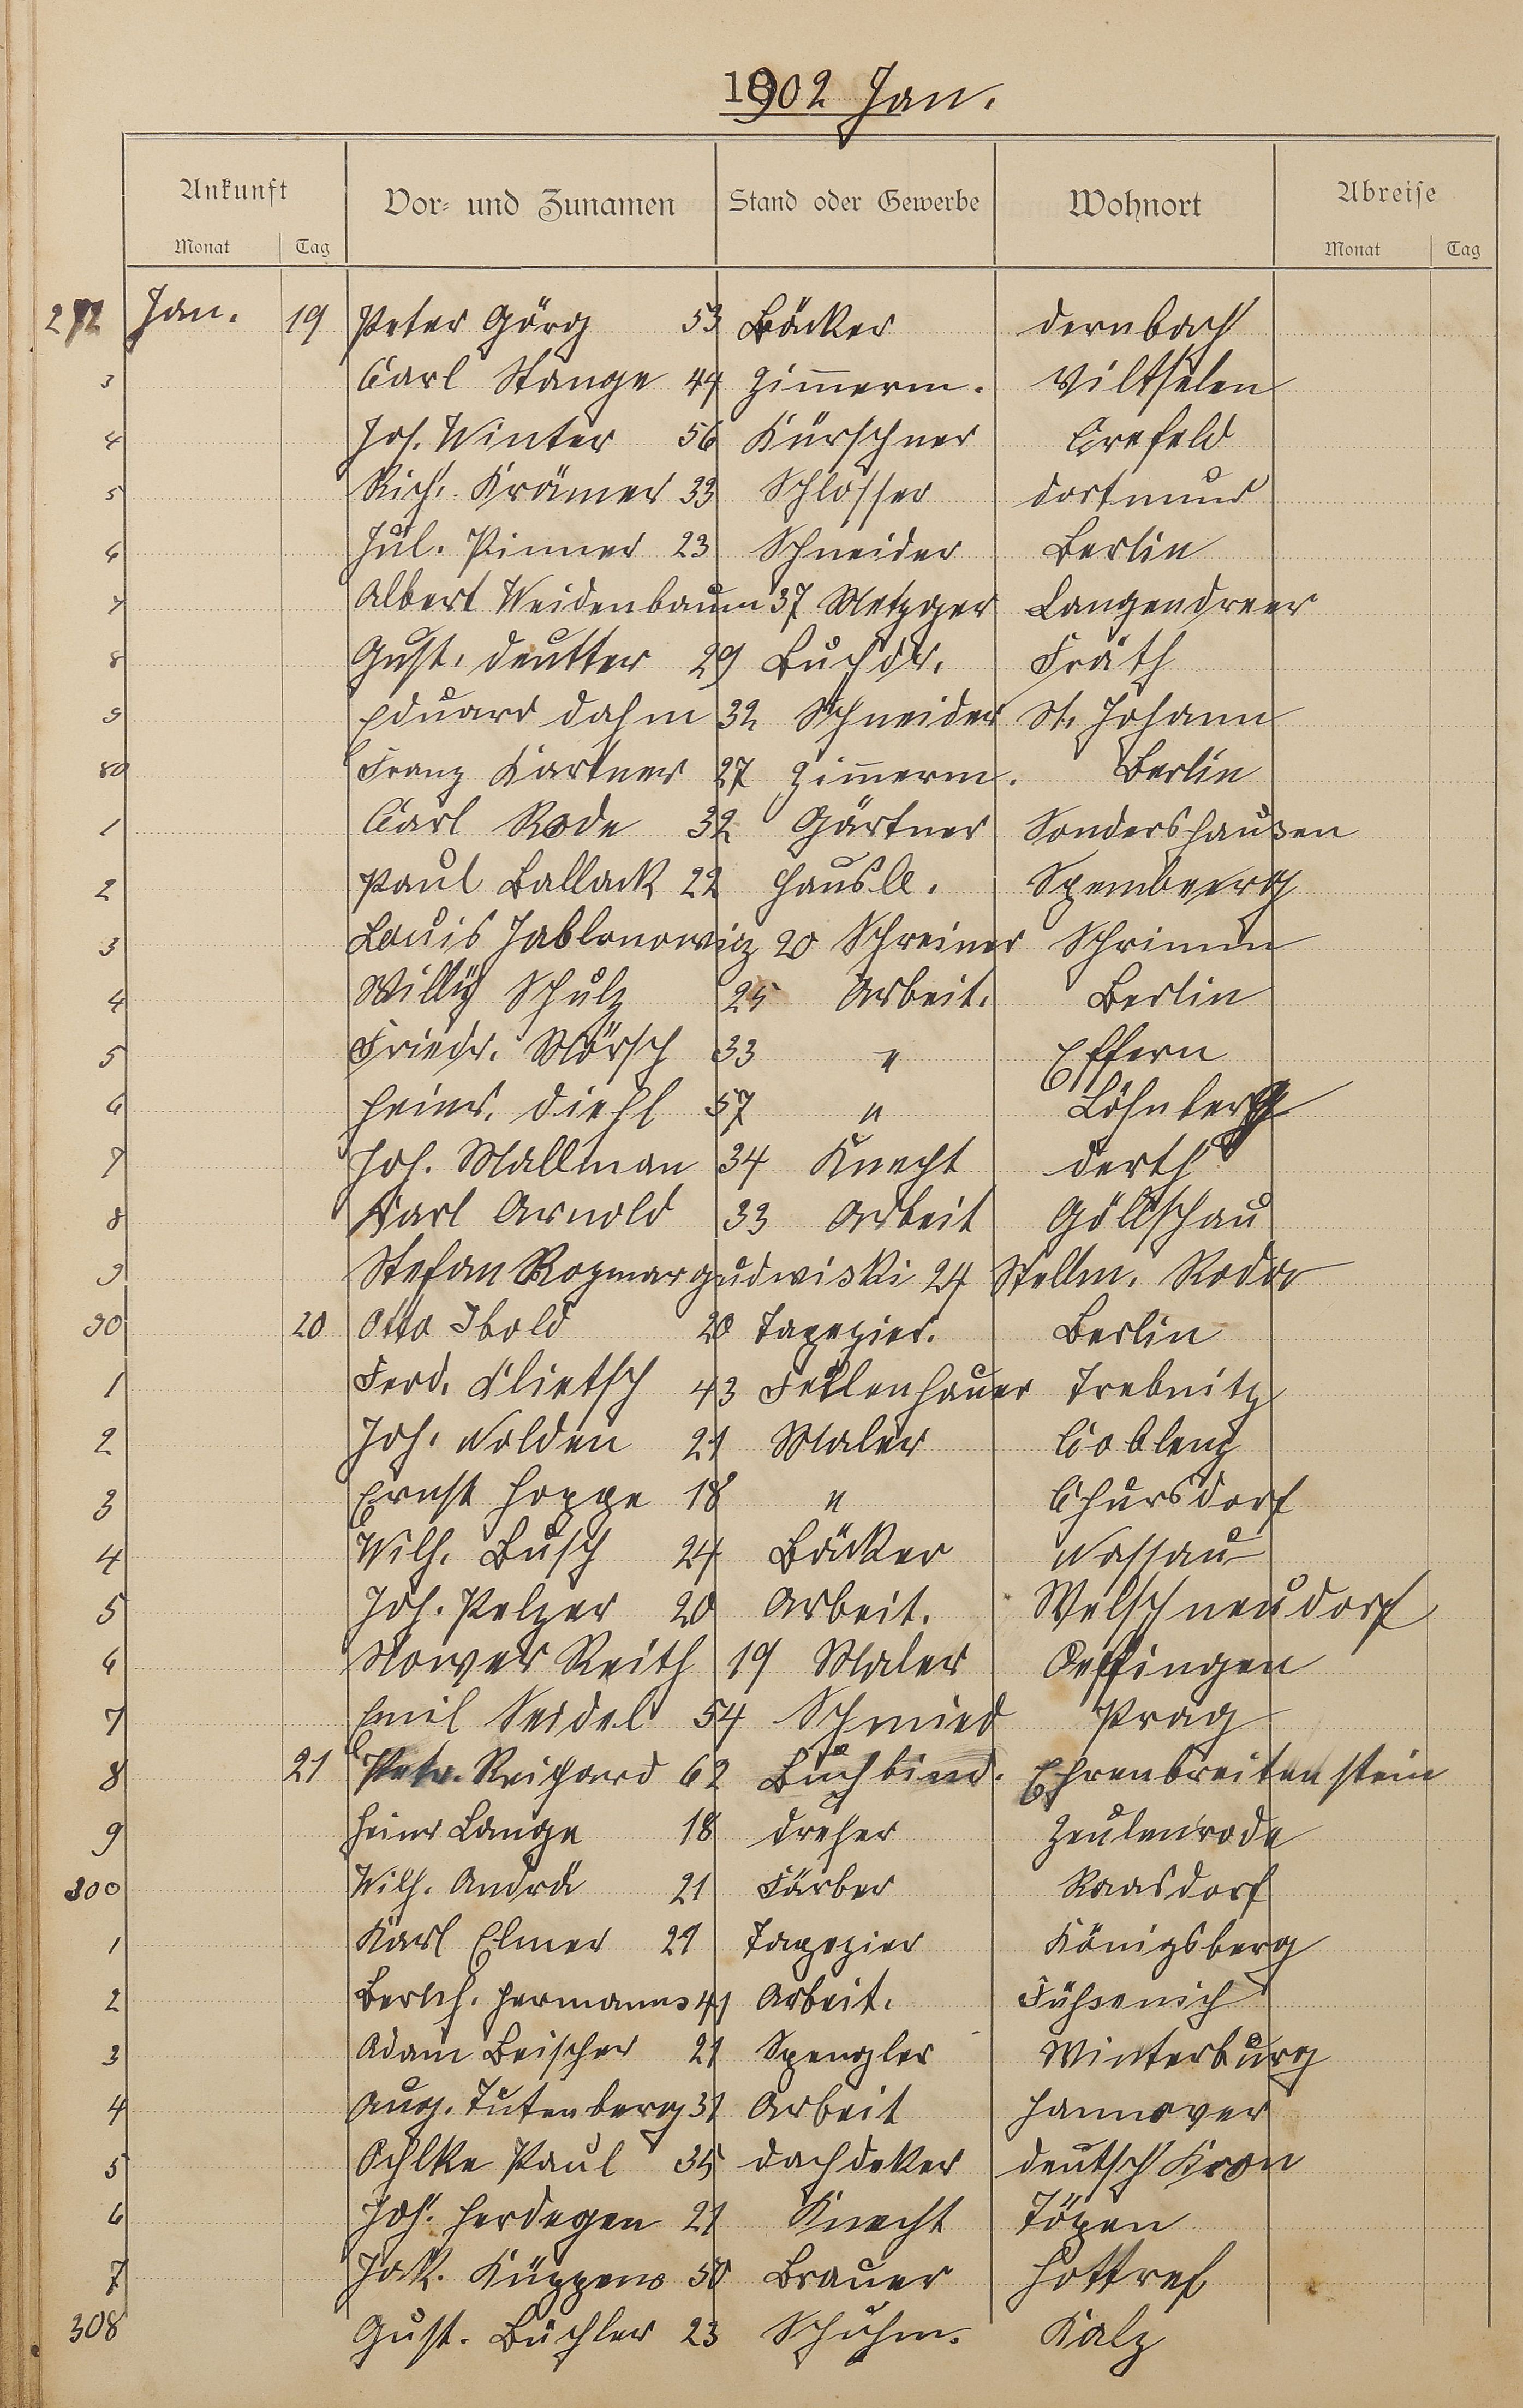 1902 Jan.
Ankunft Vor- und Zunamen Stand oder Gewerbe Wohnort Abreise
Monat Tag Monat Tag
272 Jan. 19 Peter Görg 53 Bäcker Dernbach
3 Carl Stange 44 Zimmerm. Viltselen
4 Jos. Winter 56 Kürschner Crefeld
5 Rich. Krämer 33 Schlosser Dortmund
6 Jul. Pinner 23 Schneider Berlin
7 Albert Weidenbaum 37 Metzger Langendreer
8 Gust. Deutter 29 Buchdr. Fräth
9 Eduard Dahm 32 Schneider St. Johann
80 Franz Kartner 27 Zimmerm. Berlin
1 Carl Rode 32 Gärtner Sondershausen
2 Paul Ballack 22 Hausb. Spremberg
3 Louis Jablonowiz 20 Schreiner Schrimm
4 Willy Schulz 25 Arbeit. Berlin
5 Friedr. Mörsch 33 " Effern
6 Heinr. Diehl 57 " Löhnberg
7 Joh. Mallman 34 Knecht Derth
8 Karl Arnold 33 Arbeit Göllschau
9 Stefan 24 Stellm.
90 20 Otto Ibold 20 Tapezier. Berlin
1 Ferd. Klietsch 43 Feilenhauer Trebnitz
2 Joh. Nolden 21 Maler Coblenz
3 Ernst Hoppe 18 " Chursdorf
4 Wilh. Busch 24 Bäcker Nassau
5 Joh. Pelzer 20 Arbeit. Welschneudorf
6 Reith 19 Maler Oeffingen
7 Emil Seidel 54 Schmied Prag
8 21 Petr. Reichard 62 Buchbind. Ehrenbreitenstein
9 Heinr Lange 18 Dreher Zeulenroda
300 Wilh. Andrä 21 Färber Raasdorf
1 Karl Elmer 29 Tapezier Königsberg
2 Hermanns 41 Arbeit. Füssenich
3 Adam Beischer 21 Spengler Winterburg
4 Aug. Tutenberg 31 Arbeit Hannover
5 Ohlke Paul 35 Dachdeker Deutsch Kron
6 Joh. Herdegen 21 Knecht Töpen
7 Jak. Küppers 50 Brauer
308 Gust. Büchler 23 Schuhm. Kalz